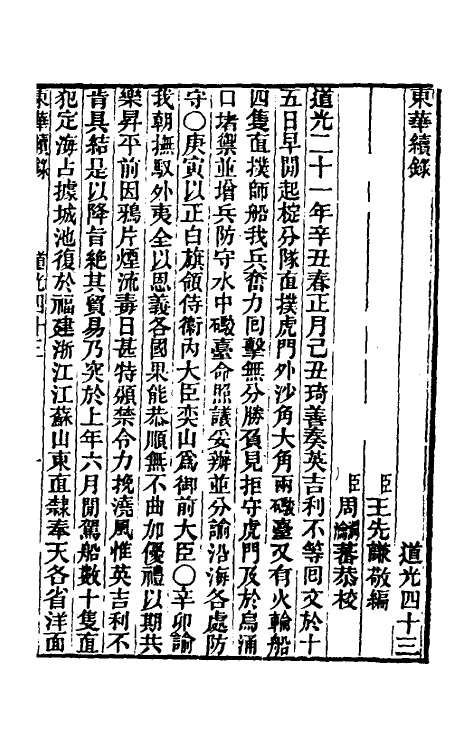 東華續錄　道光四十三
臣王先謙敬編
臣周瀹蕃恭校
道光二十一年辛丑春正月己丑琦善奏英吉利不等囘文於十
五日早開起椗分隊直撲虎門外沙角大角兩礮臺又有火輪船
四隻直撲師船我兵奮力囘擊無分勝負見拒守虎門及於烏涌
口堵禦並增兵防守水中礮臺命照議妥辦並分諭沿海各處防
守〇庚寅以正白旗領侍衞內大臣奕山爲御前大臣〇辛卯諭
我朝撫馭外夷全以恩義各國果能恭順無不曲加優禮以期共
樂昇平前因鴉片煙流毒日甚特頒禁令力挽澆風惟英吉利不
肯具結是以降旨絕其貿易乃突於上年六月開駕船數十隻直
犯定海占據城池復於福建浙江江蘇山東直隸奉天各省洋面
東華續錄　道光四十三　一